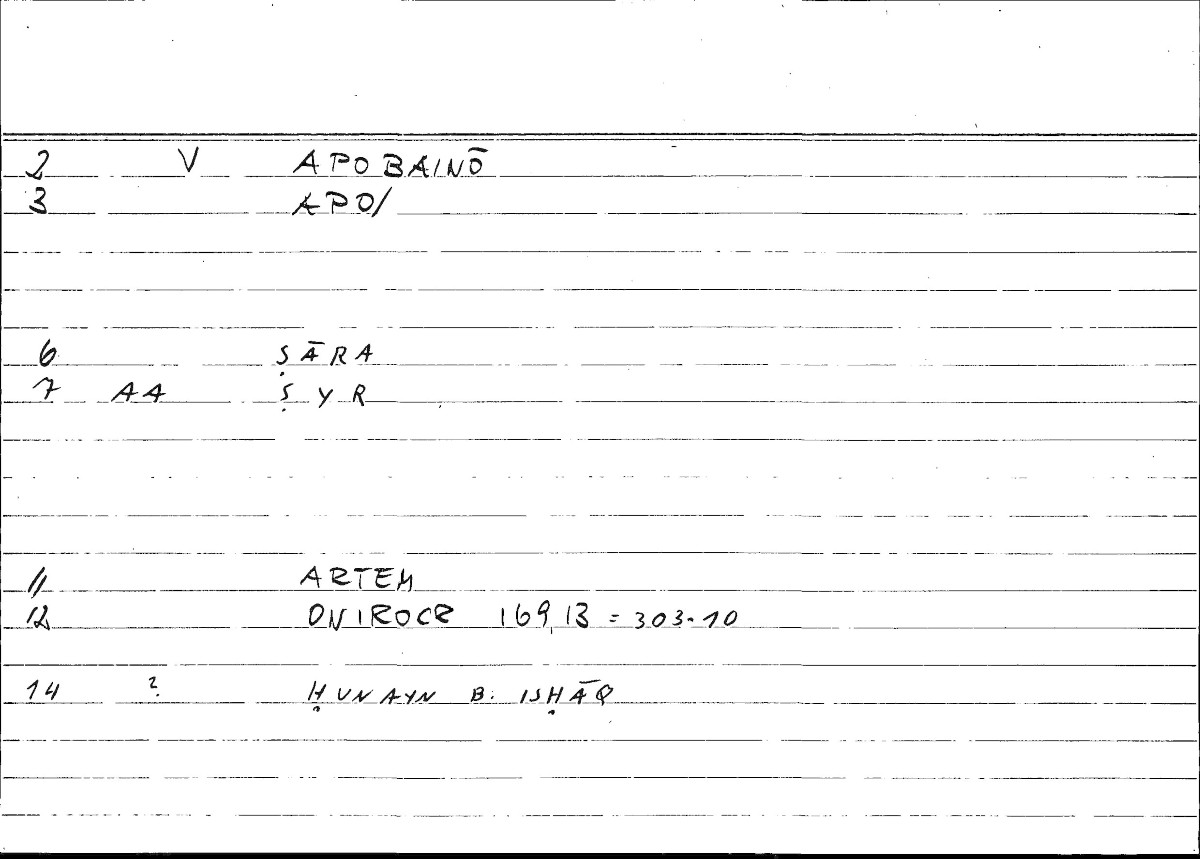 2 V APOBAINŌ
3 APO/
6 ṢĀRA
7 AA ṢYR
11 ARTEM
12 ONIROCR 169,13 = 303.10
14 ? ḤUNAYN B. ISḤĀQ